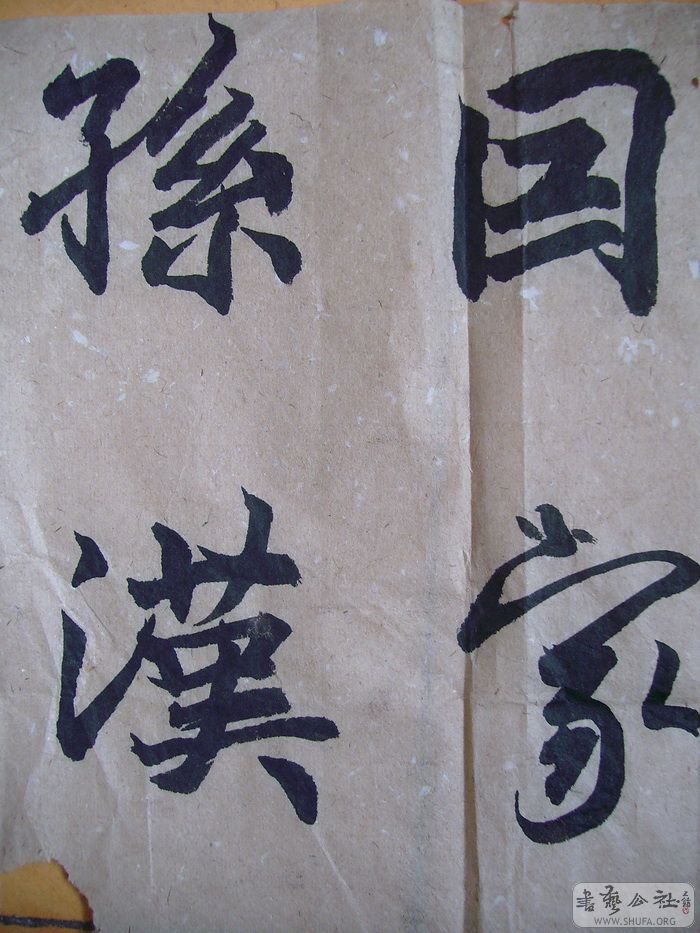 回家
孫漢
書藝公社
WWW.SHUFA.ORG